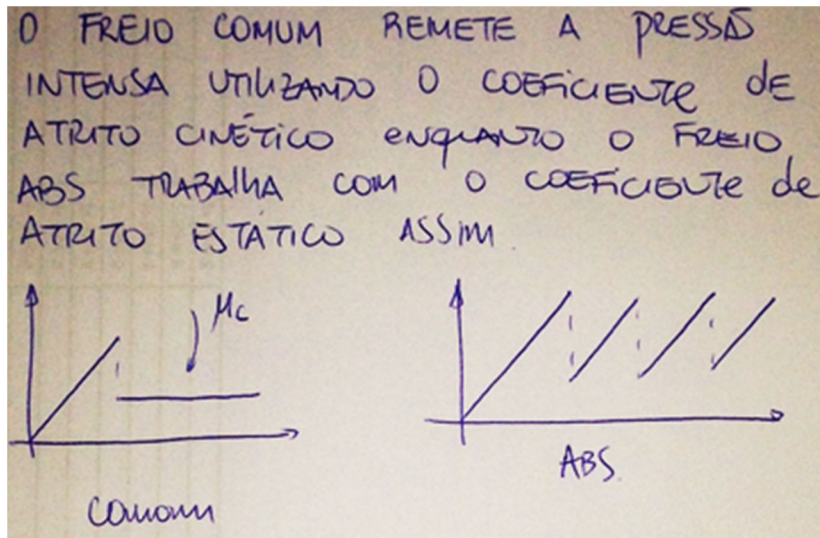 O FREIO COMUM REMETE A PRESSÃO
INTENSA UTILIZANDO O COEFICIENTE dE
ATRITO CINÉTICO ENQUANTO O FREIO
ABS TRABALHA COM O COEFICIENTE de
ATRITO ESTÁTICO ASSIM.
μc
ABS
Comum